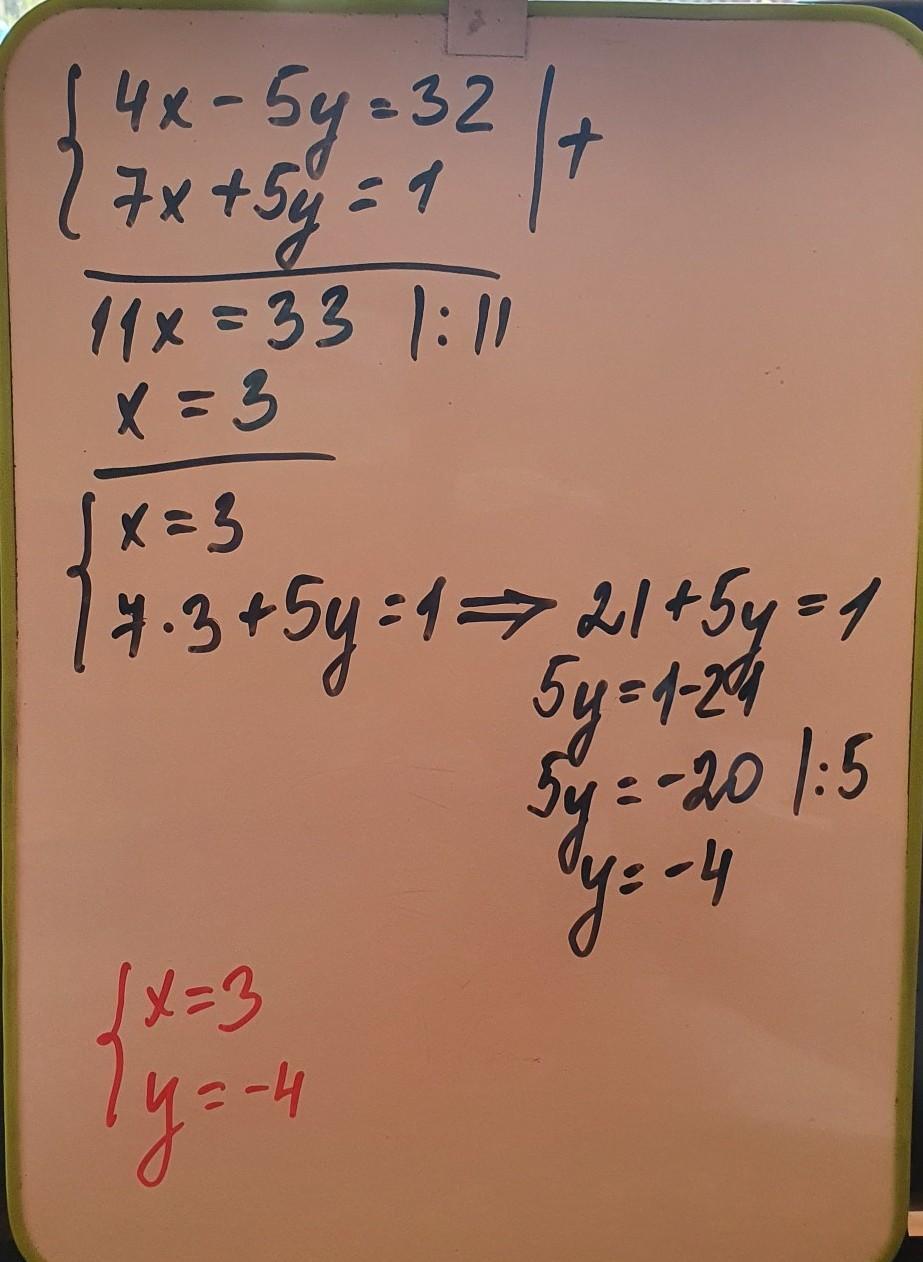 { 4x - 5y = 32 | +
7x + 5y = 1
11x = 33 |:11
x = 3
{ x = 3
7·3 + 5y = 1 ⇒ 21 + 5y = 1
5y = 1 - 21
5y = -20 |:5
y = -4
{ x = 3
y = -4